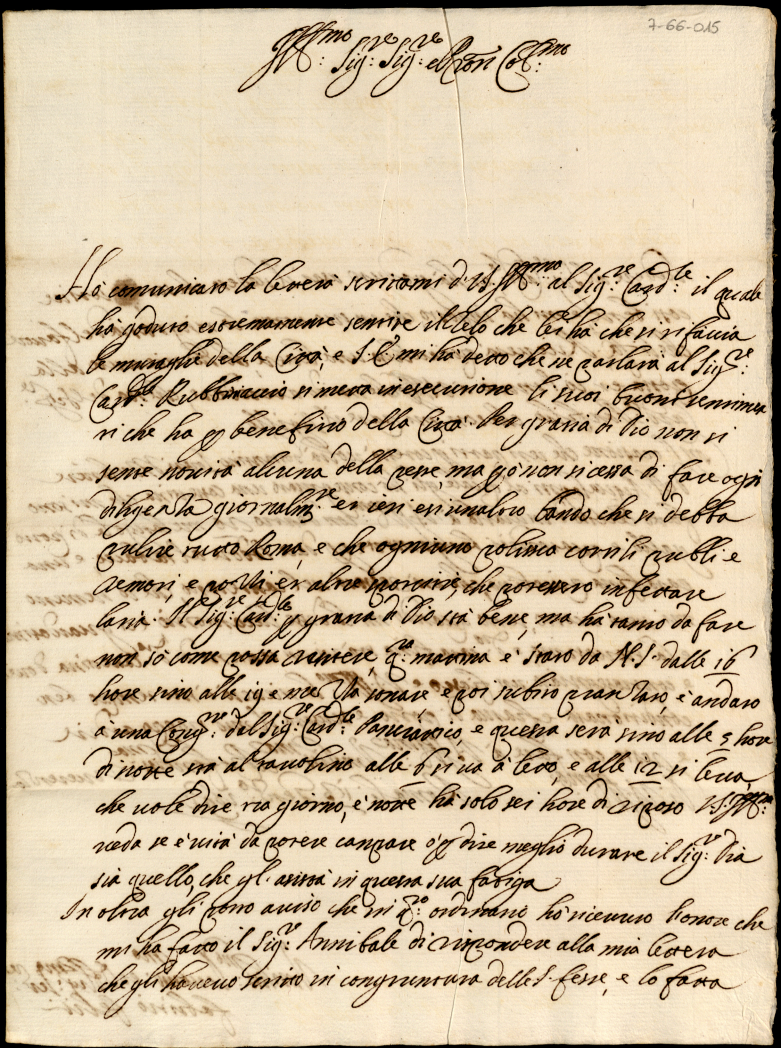 7-66-015
Ill.mo Sig.re Sig.re e Pron Col.mo
Hò comunicato la lettera scrittami dà VS Ill.mo al Sig.re Card.le il quale
hà goduto estremamente sentire il zelo che lei hà che si rifaccia
le muraglie della Città, e S.E. mi hà detto che ne parlarà al Sig.re
Card.le Rubbiaccio si metta in esecutione li suoi buoni sentimen
ti che ha p benefitio della Città. Per gratia di Dio non si
sente novità alcuna della peste, ma p ò non si cessa di fare ogni
diligenza giornalm.te et ieri esci un altro bando che si debba
pulire tutto Roma, e che ogniuno polisca cortili publi e
remoti, e pozzi et altre sporcitie, che potessero infettare
laria. Il Sig.re Card.le p gratia di Dio stà bene, ma hà tanto da fare
non sò come possa resistere, q.ta matina è stato da N.S. dalle 16
hore sino alle 19 e mezza sonate, e poi subito pranzato, è andato
à una Cong.ne del Sig.re Card.le Panciatico, e questa sera sino alle 5 hore
di notte stà al tavolino alle 6 si va à letto, e alle 12 si leva,
che vole dire tra giorno, e notte hà solo sei hore di riposo VS.Ill.ma
veda se è vita da potere campare ò p dire meglio durare il Sig.re Dia
sia quello, che gl'assista in questa sua fatiga
In oltra gli porto aviso che in q.to ordinario hò ricevuto l'onore che
mi ha fatto il Sig.re Annibale di rispondere alla mia lettera
che gli havevo scritto in congiuntura delle S. feste, e lo fatta